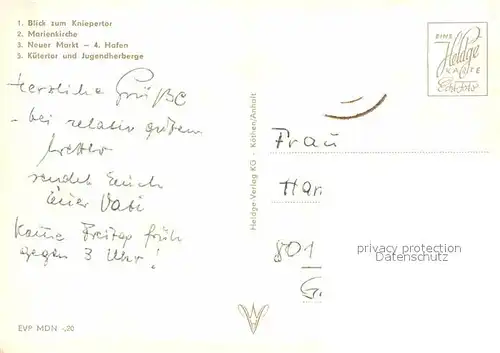 1. Blick zum Kniepertor
2. Marienkirche
3. Neuer Markt — 4. Hafen
5. Kütertor und Jugendherberge
EINE
Heldge
KARTE
Echt Foto
Herzliche Grüße
- bei relativ gutem
Wetter
sendet Euch
Euer Vati
Komme Freitag früh
gegen 3 Uhr!
Heldge-Verlag KG - Köthen/Anhalt
Frau
Han
801
G
privacy protection
Datenschutz
EVP MDN -,20